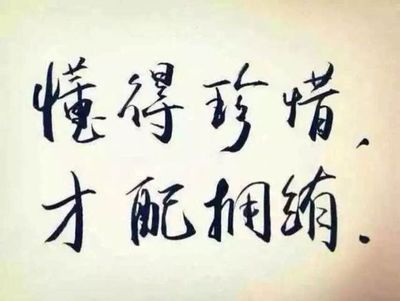 懂得珍惜、
才配拥有、